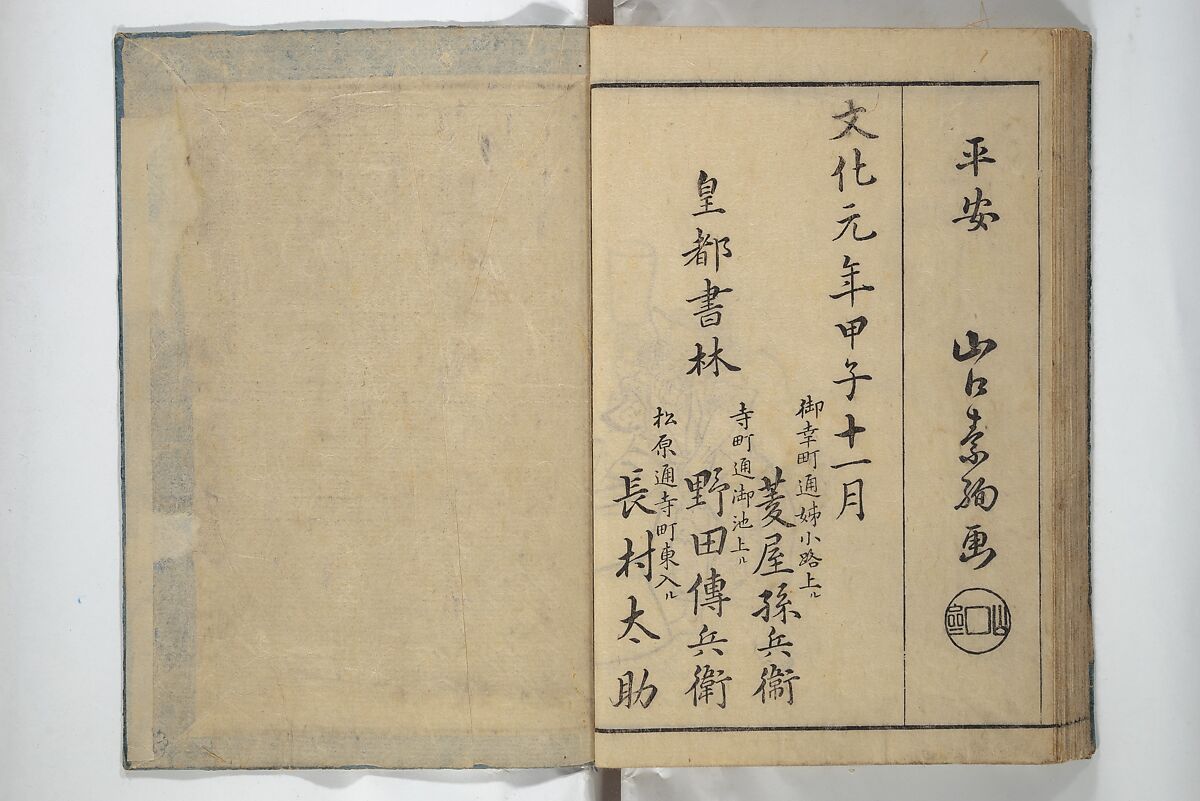 平安 山口素絢画
文化元年甲子十一月
皇都書林
御幸町通姉小路上ル
菱屋孫兵衞
寺町通御池上ル
野田傳兵衛
松原通寺町東入ル
長村太助